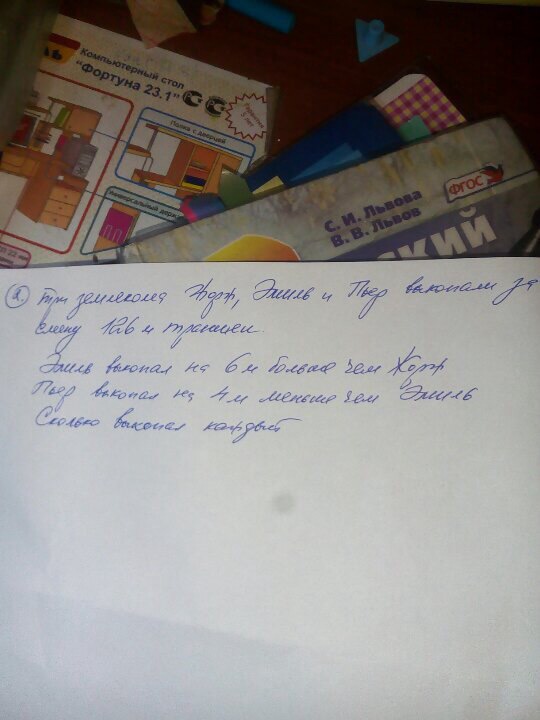 Компьютерный стол
"Фортуна 23.1"
Гарантия
5 лет
Полка с дверцей
Универсальный держ
С. И. Львова
В. В. Львов
ФГОС
СКИЙ
2. три землекопа Жорж, Эмиль и Пьер выкопали за
смену 126 м траншеи.
Эмиль выкопал на 6 м больше чем Жорж
Пьер выкопал на 4 м меньше чем Эмиль
Сколько выкопал каждый